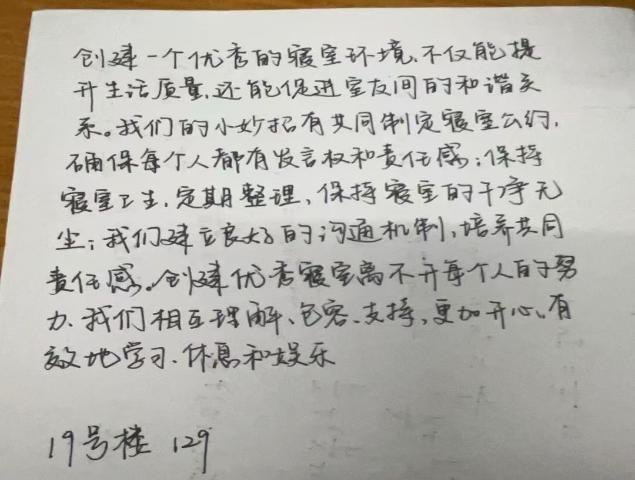 创建一个优秀的寝室环境，不仅能提
升生活质量，还能促进室友间的和谐关
系。我们的小妙招有共同制定寝室公约，
确保每个人都有发言权和责任感；保持
寝室卫生，定期整理，保持寝室的干净无
尘；我们建立良好的沟通机制，培养共同
责任感。创建优秀寝室离不开每个人的努
力，我们相互理解、包容、支持，更加开心、有
效地学习、休息和娱乐
19号楼 129